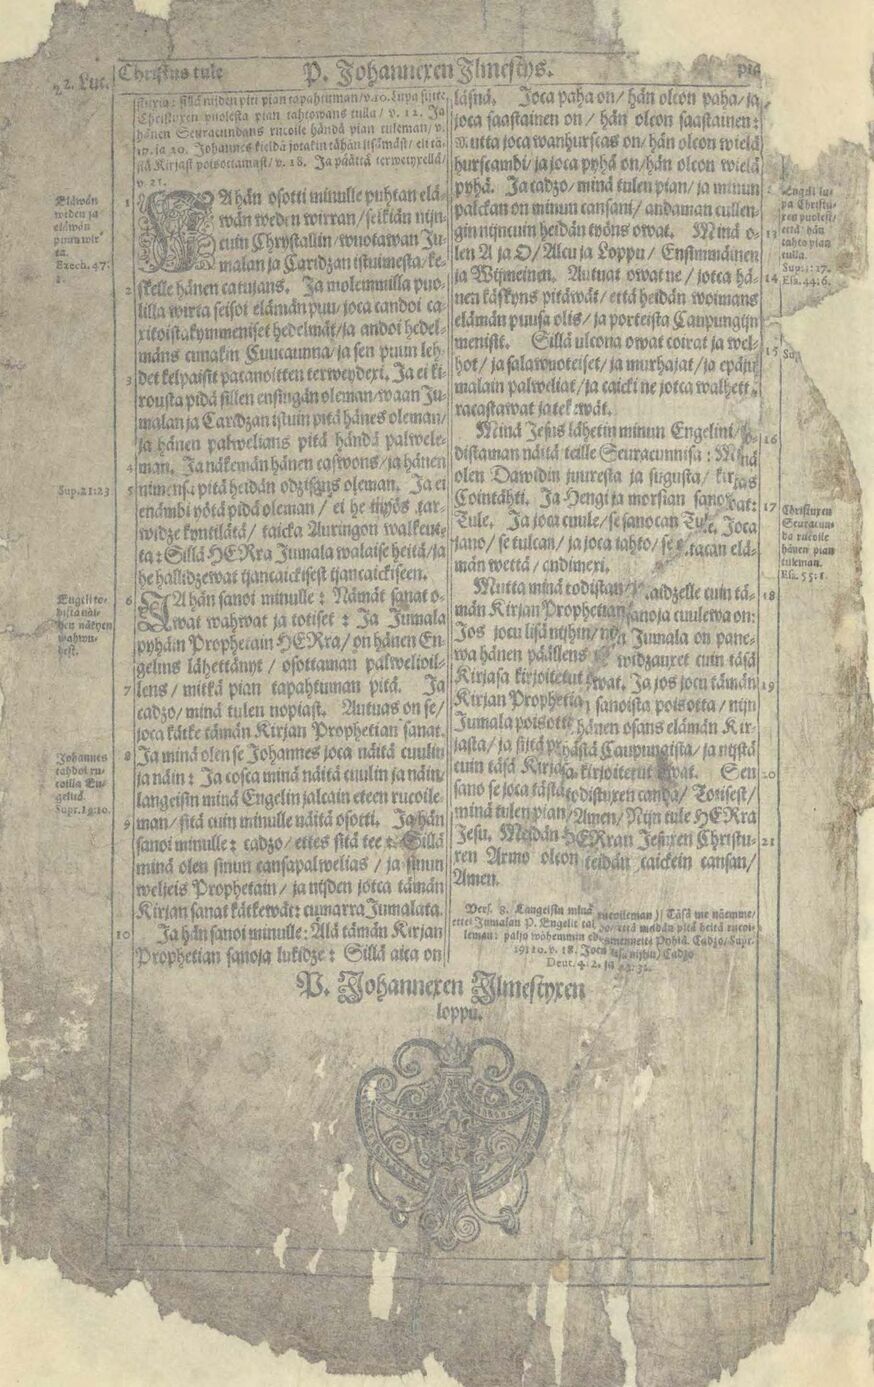 22. Luc.
Christus tule
P. Johannexen Ilmestys.
pia
stuxia: sillä nijden piti pian tapahtuman/ v. 10. Lupa sijtte
Christuxen puolesta pian tahtowans tulla/ v. 12. Ja
hänen Seuracundans rucoile händä pian tuleman/ v.
17. ja 20. Johannes kieldä jotakin tähän lisämäst/ eli tä-
stä Kirjast poisottamast/ v. 18. Ja päättä terwetyxellä/
v. 21.
1 JA hän osotti minulle puhtan elä-
wän weden wirran/ selkiän nijn-
cuin Chrystallin/ wuotawan Ju-
malan ja Caridzan istuimesta/ ke-
2 skelle hänen catujans. Ja molemmilla puo-
lilla wirta seisoi elämän puu/ joca candoi ca-
xitoistakymmeniset hedelmät/ ja andoi hedel-
mäns cunakin Cuucautna/ ja sen puun leh-
3 det kelpaisit pacanoitten terweydexi. Ja ei ki-
rousta pidä sillen ensingän oleman/ waan Ju-
malan ja Caridzan istuin pitä hänes oleman/
ja hänen palwelians pitä händä palwele-
4 man. Ja näkemän hänen caswons/ ja hänen
5 nimensä pitä heidän odzisans oleman. Ja ei
enämbi yötä pidä oleman/ ei he myös tar-
widze kyntilätä/ taicka Auringon walkeut-
ta: Sillä HERra Jumala walaise heitä/ ja
he hallidzewat ijancaickisest ijancaickiseen.
6 JA hän sanoi minulle: Nämät sanat o-
wat wahwat ja totiset: Ja Jumala
pyhäin Prophetain HERra/ on hänen En-
gelins lähettänyt/ osottaman palwelioil-
7 lens/ mitkä pian tapahtuman pitä. Ja
cadzo/ minä tulen nopiast. Autuas on se/
joca kätke tämän Kirjan Prophetian sanat.
8 Ja minä olen se Johannes joca näitä cuulin
ja näin: Ja cosca minä näitä cuulin ja näin/
langeisin minä Engelin jalcain eteen rucoile-
9 man/ sitä cuin minulle näitä osotti. Ja hän
sanoi minulle: cadzo/ ettes sitä tee: Sillä
minä olen sinun cansapalwelias/ ja sinun
weljeis Prophetain/ ja nijden jotca tämän
Kirjan sanat kätkewät: cumarra Jumalata.
10 Ja hän sanoi minulle: Älä tämän Kirjan
Prophetian sanoja lukidze: Sillä aica on
Eläwän
weden ja
elämän
puun wir-
ta.
Ezech. 47:
1.
Sup. 21:23
Engeli to-
dista näi-
den näkyen
wahwu-
dest.
Johannes
tahdoi ru-
coilla En-
geliä.
Supr. 19:10.
läsnä. Joca paha on/ hän olcon paha/ ja
joca saastainen on/ hän olcon saastainen:
mutta joca wanhurscas on/ hän olcon wielä
hurscambi/ ja joca pyhä on/ hän olcon wielä
pyhä. Ja cadzo/ minä tulen pian/ ja minun
palckan on minun cansani/ andaman cullen-
gin nijncuin heidän työns owat. Minä o- 13
len A ja O/ Alcu ja Loppu/ Ensimmäinen
ja Wijmeinen. Autuat owat ne/ jotca hä- 14
nen käskyns pitäwät/ että heidän woimans
elämän puusa olis/ ja porteista Caupungijn
menisit. Sillä ulcona owat coirat ja wel- 15
hot/ ja salawuoteiset/ ja murhajat/ ja epäju-
malain palweliat/ ja caicki ne jotca walhett
racastawat ja tekewät.
Minä Jesus lähetin minun Engelini/ to- 16
distaman näitä teille Seuracunnisa: Minä
olen Dawidin juuresta ja sugusta/ kircas
Cointähti. Ja Hengi ja morsian sanowat: 17
Tule. Ja joca cuule/ se sanocan Tule. Joca
jano/ se tulcan/ ja joca tahto/ se ottacan elä-
män wettä/ andimexi.
Mutta minä todistan/ caidzelle cuin tä- 18
män Kirjan Prophetian sanoja cuulewa on:
Jos jocu lisä nijhin/ nijn Jumala on pane-
wa hänen päällens widzauxet cuin täsä
Kirjasa kirjoitetut owat. Ja jos jocu tämän 19
Kirjan Prophetia sanoista poisotta/ nijn
Jumala poisotta hänen osans elämän Kir-
jasta/ ja sijtä pyhästä Caupungista/ ja nijstä
cuin täsä Kirjasa kirjoitetut owat. Sen 20
sano se joca tästä todistuxen canda/ Totisest/
minä tulen pian/ Amen/ Nijn tule HERra
Jesu. Meidän HERran Jesuxen Christu- 21
xen Armo olcon teidän caickein cansan/
Amen.
Engeli lu-
pa Christu-
xen puolest/
että hän
tahto pian
tulla.
Sup. 1:17.
Esa. 44:6.
Sup
Christuxen
Seuracun-
da rucoile
hänen pian
tuleman.
Esa. 55:1.
Vers. 8. Langeisin minä rucoilleman) Täsä me näemme/
ettei Jumalan P. Engelit että meidän pitä heitä rucoi-
leman: paljo wähemmin edesmenneitä Pyhiä. Cadzo/ Supr.
19:10. v. 18. Jocu lisä nijhin) Cadzo
Deut. 4:2. ja
P. Johannexen Ilmestyxen
loppu.